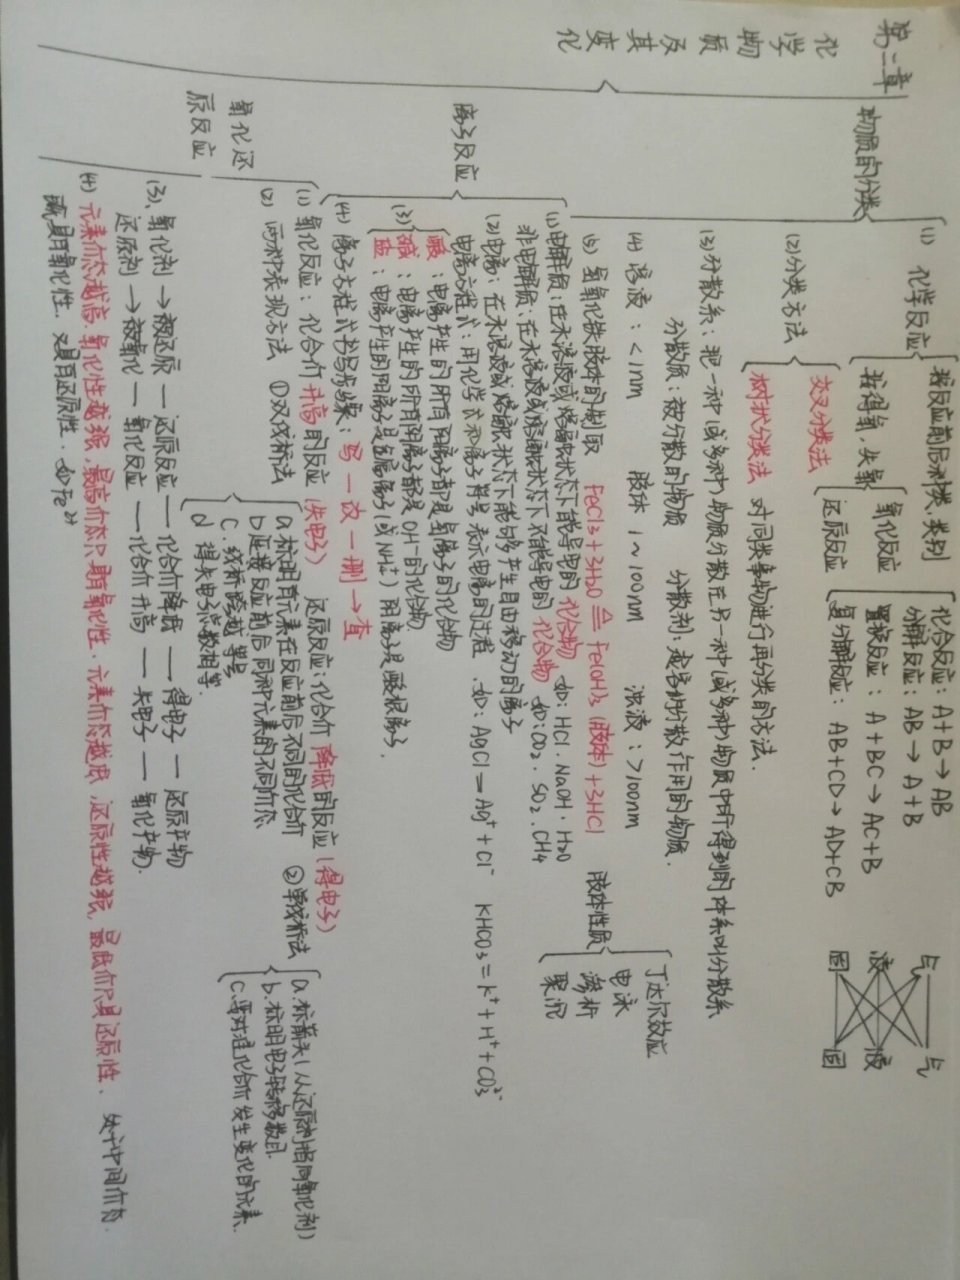 第二章
化学物质及其变化
物质的分类
(1) 化学反应
我反应前后种类、类别
化合反应：A+B→AB
分解反应：AB→A+B
置换反应：A+BC→AC+B
复分解反应：AB+CD→AD+CB
我得氧，失氧
氧化反应
还原反应
(2)分类方法
交叉分类法
树状分类法 对同类事物进行再分类的方法.
气 气
液 液
固 固
(3)分散系：把一种(或多种)物质分散在另一种(或多种)物质中所得到的体系叫分散系
分散质：被分散的物质 分散剂：起容纳分散作用的物质.
(4) 溶液：<1nm 胶体 1~100nm 浊液：>100nm
(5) 氢氧化铁胶体的制取 FeCl₃+3H₂O ≜ Fe(OH)₃(胶体)+3HCl
胶体性质
丁达尔效应
电泳
渗析
聚沉
离子反应
(1)电解质：在水溶液或熔融状态下能导电的化合物 如：HCl．NaOH．H₂O
非电解质：在水溶液或熔融状态下不能导电的化合物 如：CO₂．SO₂．CH₄
(2)电离：在水溶液或熔融状态下能够产生自由移动的离子
电离方程式：用化学式和离子符号表示电离的过程．如：AgCl=Ag⁺+Cl⁻ KHCO₃=K⁺+H⁺+CO₃²⁻
(3)
酸：电离产生的所有阳离子都是氢离子的化合物
碱：电离产生的所有阴离子都是OH⁻的化合物
盐：电离产生的阳离子是金属离子(或NH₄⁺)阴离子是酸根离子．
(4) 离子方程式书写步骤：写—改—删→查
氧化还原反应
(1) 氧化反应：化合价升高的反应(失电子) 还原反应：化合价降低的反应(得电子)
(2) 两种表现方法 ①双线桥法
a.标明首元素在反应前后不同的化合价
b连接反应前后同种元素的不同价态
c．线桥跨越等号
d 得失电子总数相等．
②单线桥法
a.标箭头(从还原剂指向氧化剂)
b．标明电子转移数目.
c.要对准化合价发生变化的元素.
(3)．氧化剂→被还原—还原反应—化合价降低—得电子—还原产物
还原剂→被氧化—氧化反应—化合价升高—失电子—氧化产物．
(4) 元素价态越高．氧化性越强，最高价态只具有氧化性．元素价态越底．还原性越强，最低价只具还原性．处于中间价态．
既具有氧化性．又具有还原性．如Fe²⁺